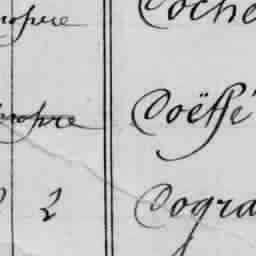 propre Coche
propre Coëffé
2 Cogra